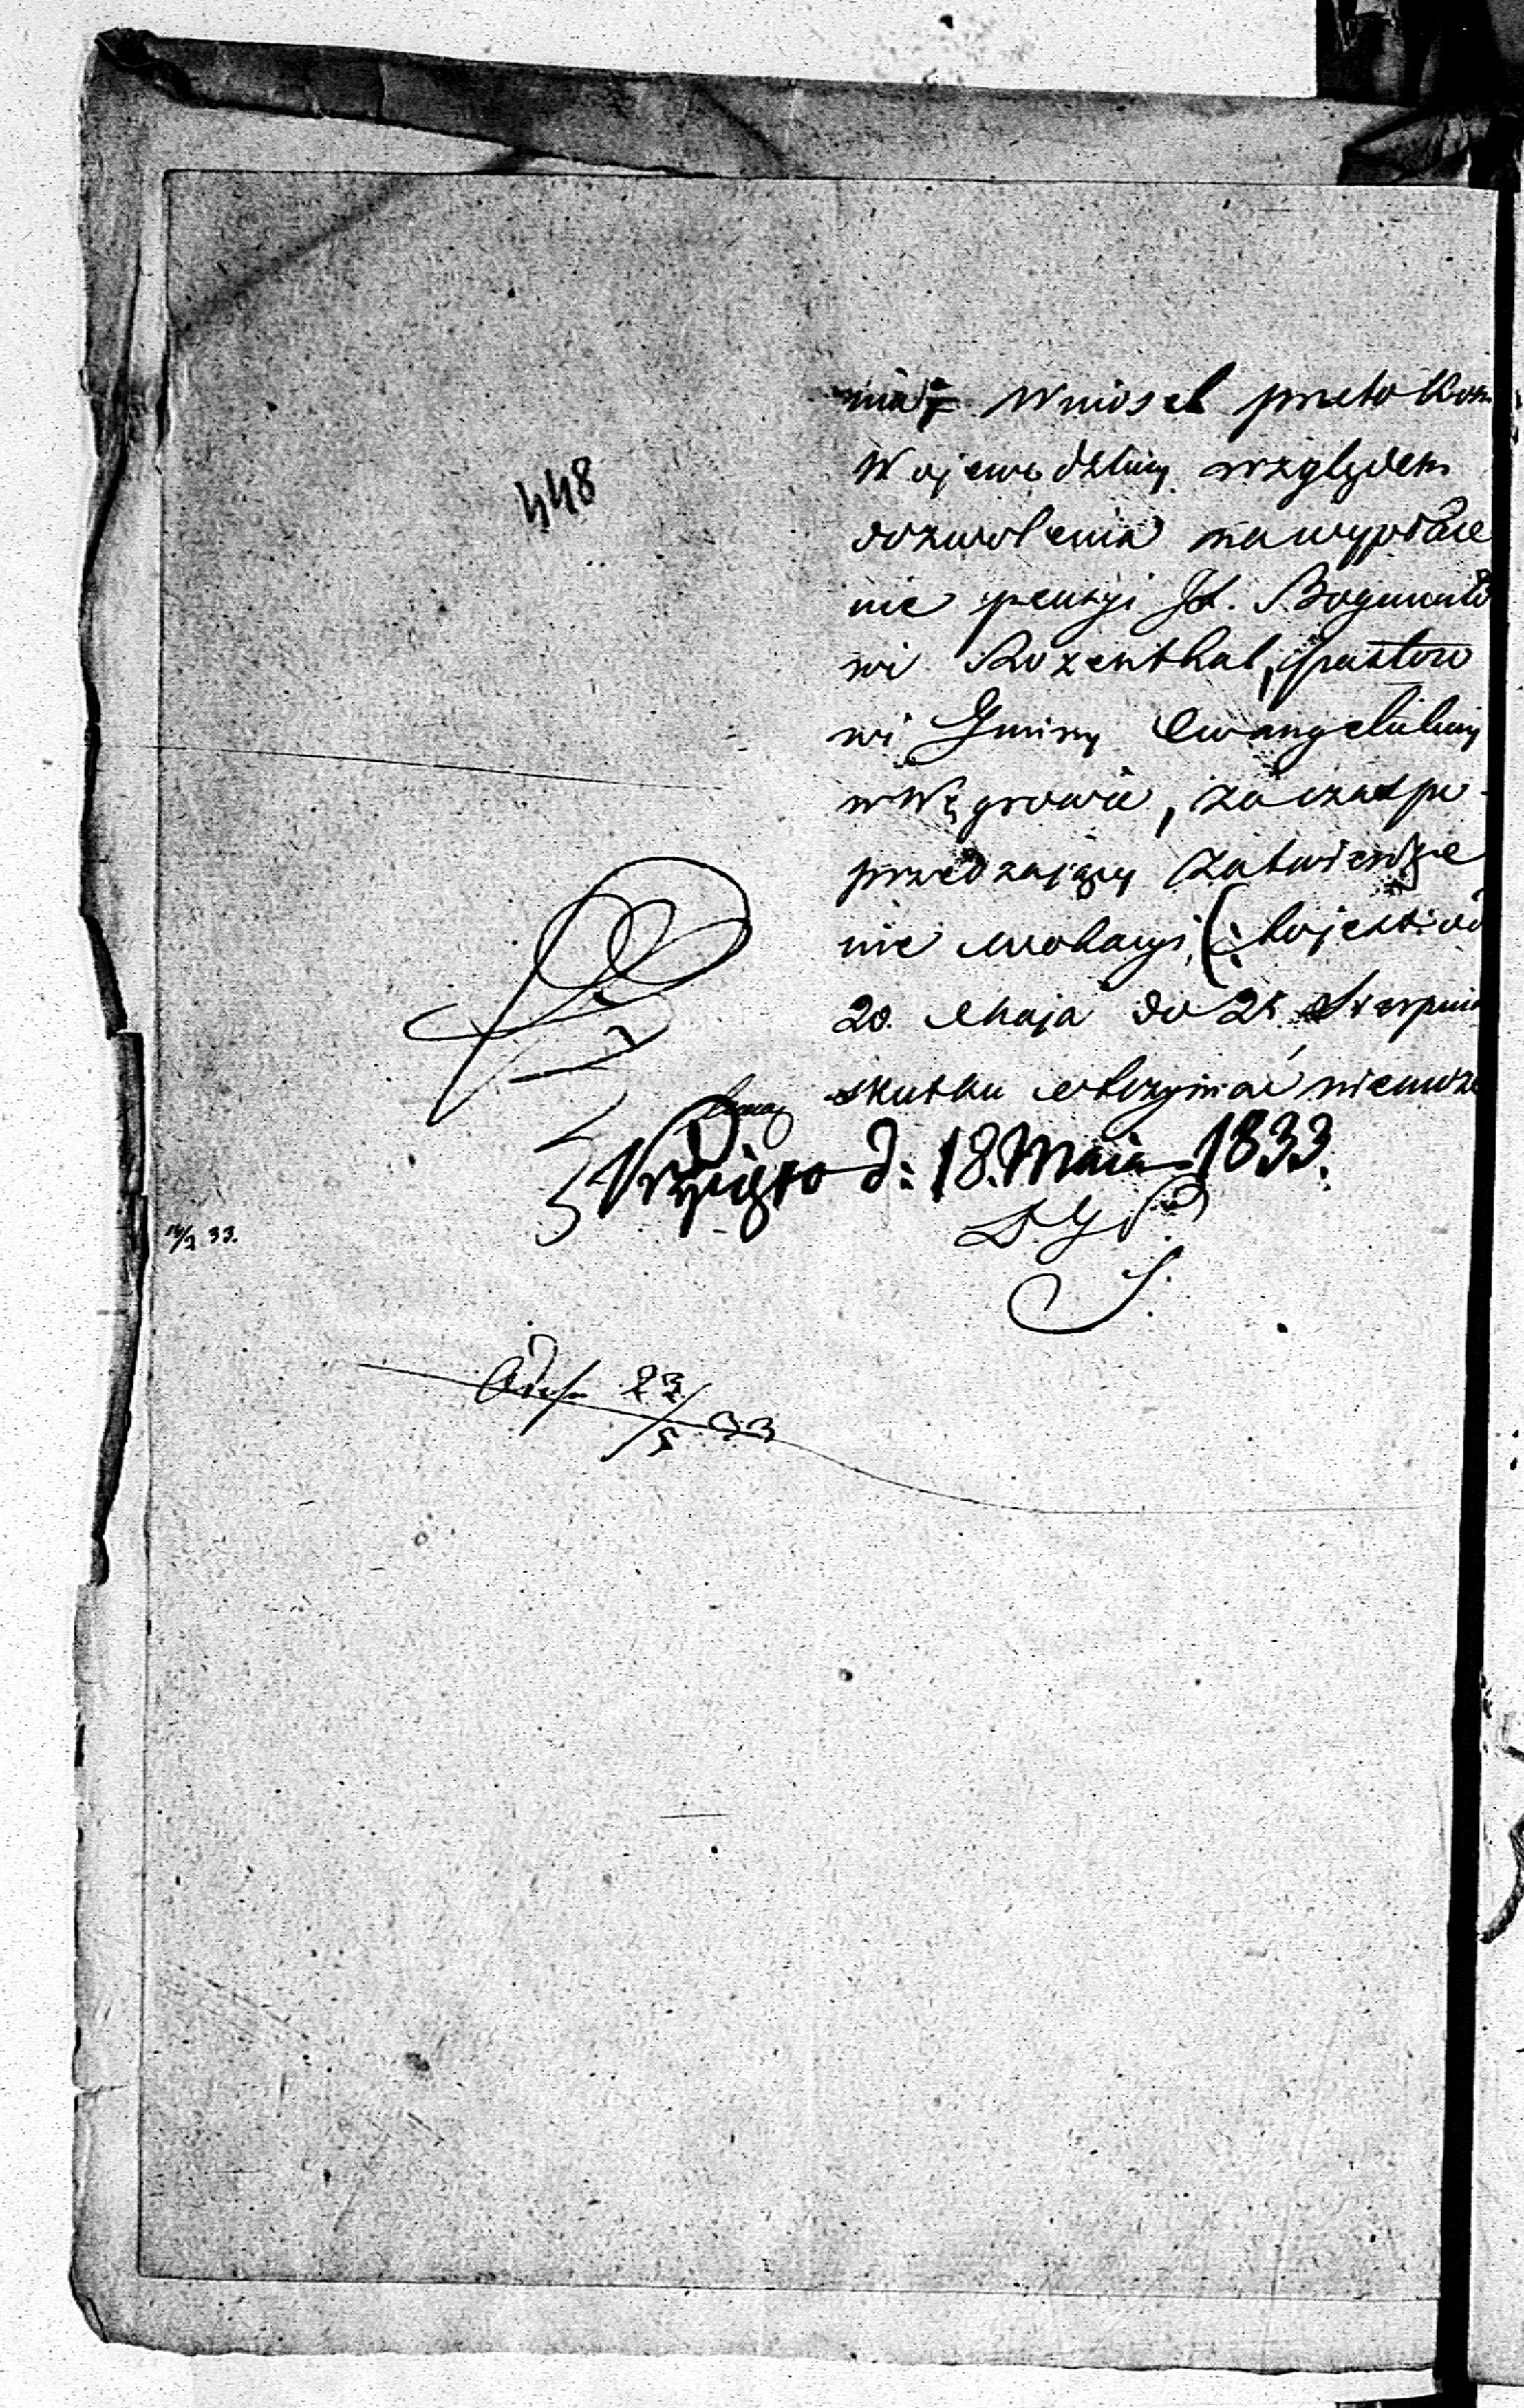 448
nia; Wniosek przeto Kom
Wojewódzkiej względem
dozwolenia na wypłace
nie pensyi Jd. Bogumiło
wi Rozenthal, pastoro
wi Gminy Ewangelickiej
w Węgrowie, za czas po-
przedzający zatwierdze
nie wokacyi, (: to jest od
20. Maja do 25. Sierpnia
skutku otrzymać niemoże
Przyięto d: 18. Maia 1833.
D. G. P.
S.
14/2 33.
23/5 33